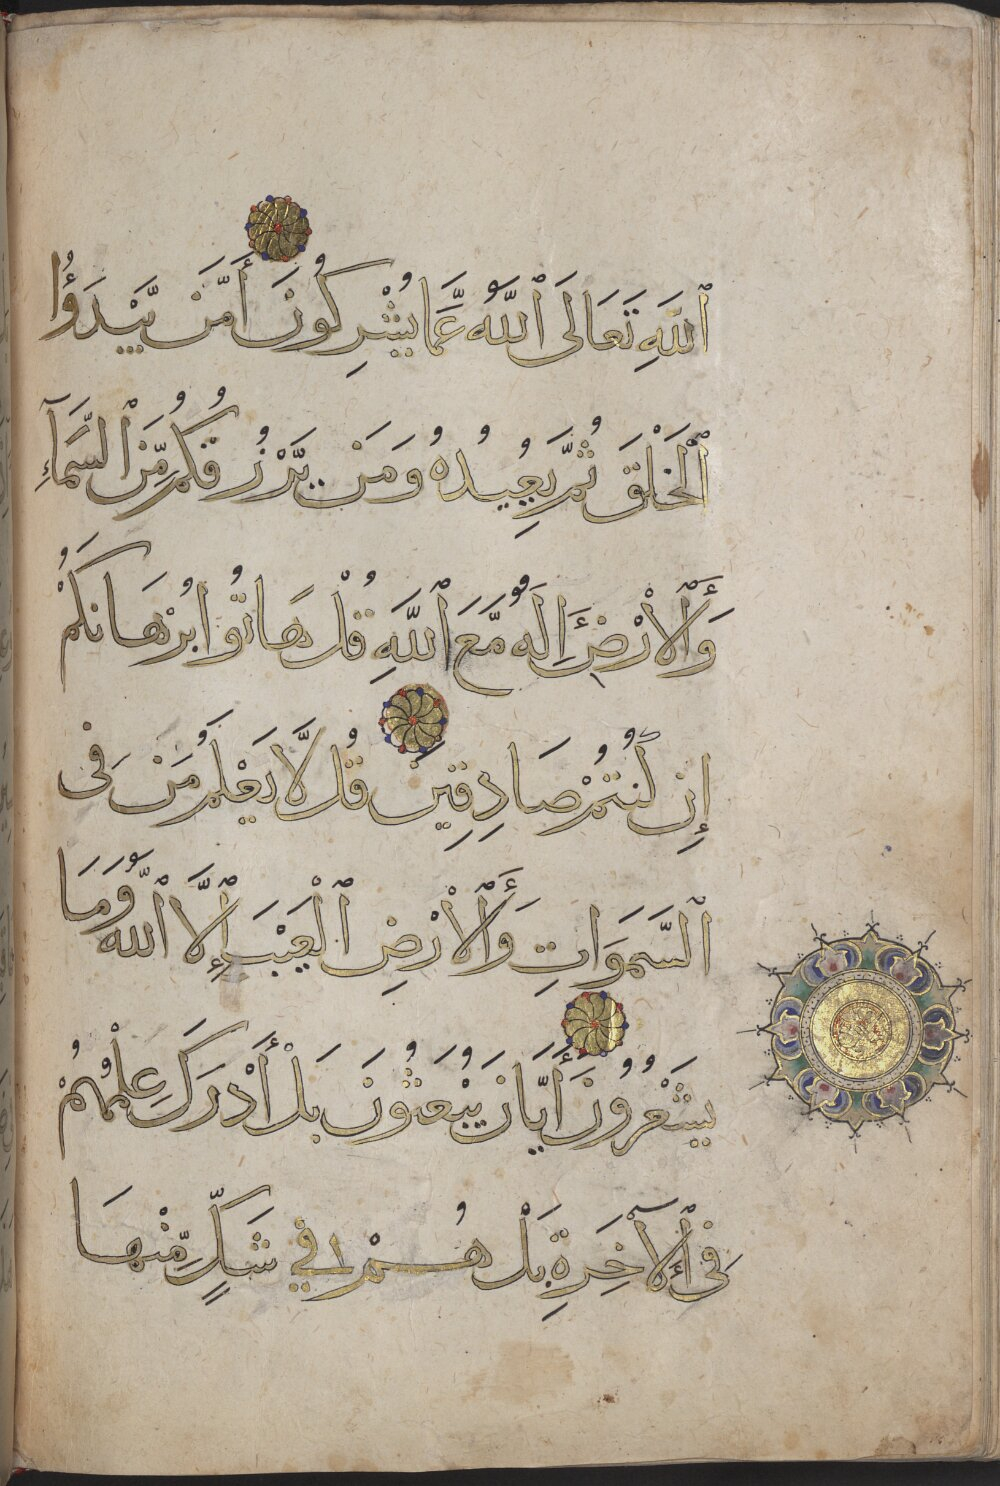 ٱللَّهِ تَعَالَى ٱللَّهُ عَمَّا يُشْرِكُونَ أَمَّن يَّبْدَؤُا
ٱلْخَلْقَ ثُمَّ يُعِيدُهُ وَمَن يَّرْزُقُكُم مِّنَ ٱلسَّمَآءِ
وَٱلْأَرْضِ أَإِلَهٌ مَّعَ ٱللَّهِ قُلْ هَاتُوا بُرْهَانَكُمْ
إِن كُنتُمْ صَادِقِينَ قُل لَّا يَعْلَمُ مَن فِى
ٱلسَّمَوَاتِ وَٱلْأَرْضِ ٱلْغَيْبَ إِلَّا ٱللَّهُ وَمَا
يَشْعُرُونَ أَيَّانَ يُبْعَثُونَ بَلْ أَدْرَكَ عِلْمُهُمْ
فِى ٱلْآخِرَةِ بَلْ هُمْ فِي شَكٍّ مِّنْهَا